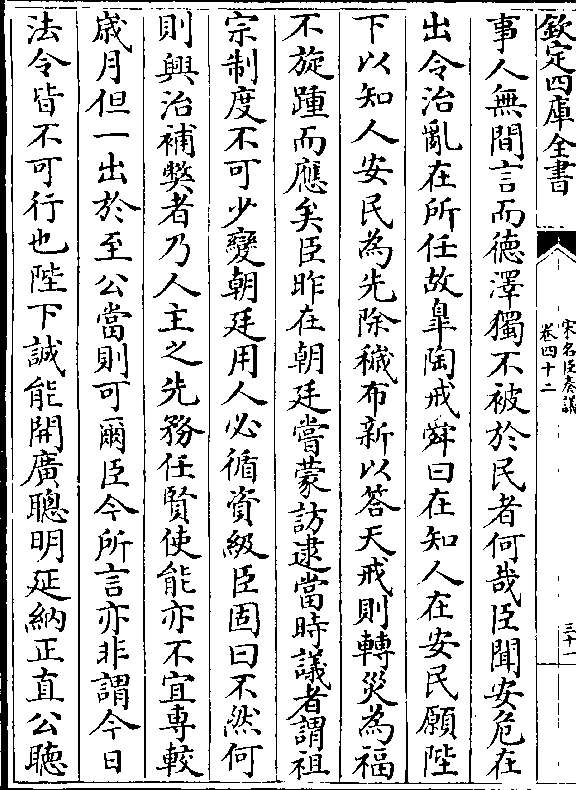 欽定四庫全書
宋名臣奏議
卷四十二
三十一
事人無間言而德澤獨不被於民者何哉臣聞安危在
出令治亂在所任故臯陶戒舜曰在知人在安民願陛
下以知人安民為先除穢布新以答天戒則轉災為福
不旋踵而應矣臣昨在朝廷嘗蒙訪逮當時議者謂祖
宗制度不可少變朝廷用人必循資級臣固曰不然何
則興治補弊者乃人主之先務任賢使能亦不宜專較
歲月但一出於至公當則可爾臣今所言亦非謂今日
法令皆不可行也陛下誠能開廣聰明延納正直公聽